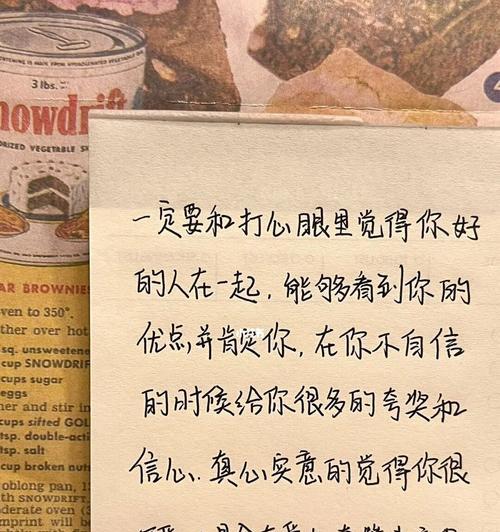 3 lbs.
nowdrift
ORIZED VEGETABLE
AR BROWNIES
ven to 350°.
ther over hot
sq. unsweetene
cup SNOWDRIF
cups sugar
eggs
er and stir in
cups sifted GOL
tsp. double-acti
tsp. salt
cup broken nut
oblong pan, 1
th SNOWDRIFT
derate oven (3
mprint will be
一定要和打心眼里觉得你好
的人在一起，能够看到你的
优点，并肯定你，在你不自信
的时候给你很多的夸奖和
信心．真心实意的觉得你很